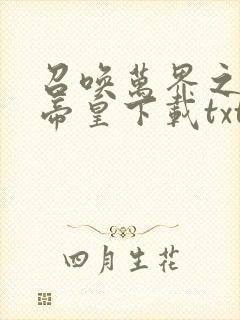 召喚萬界之
帝皇下載txt
四月生花